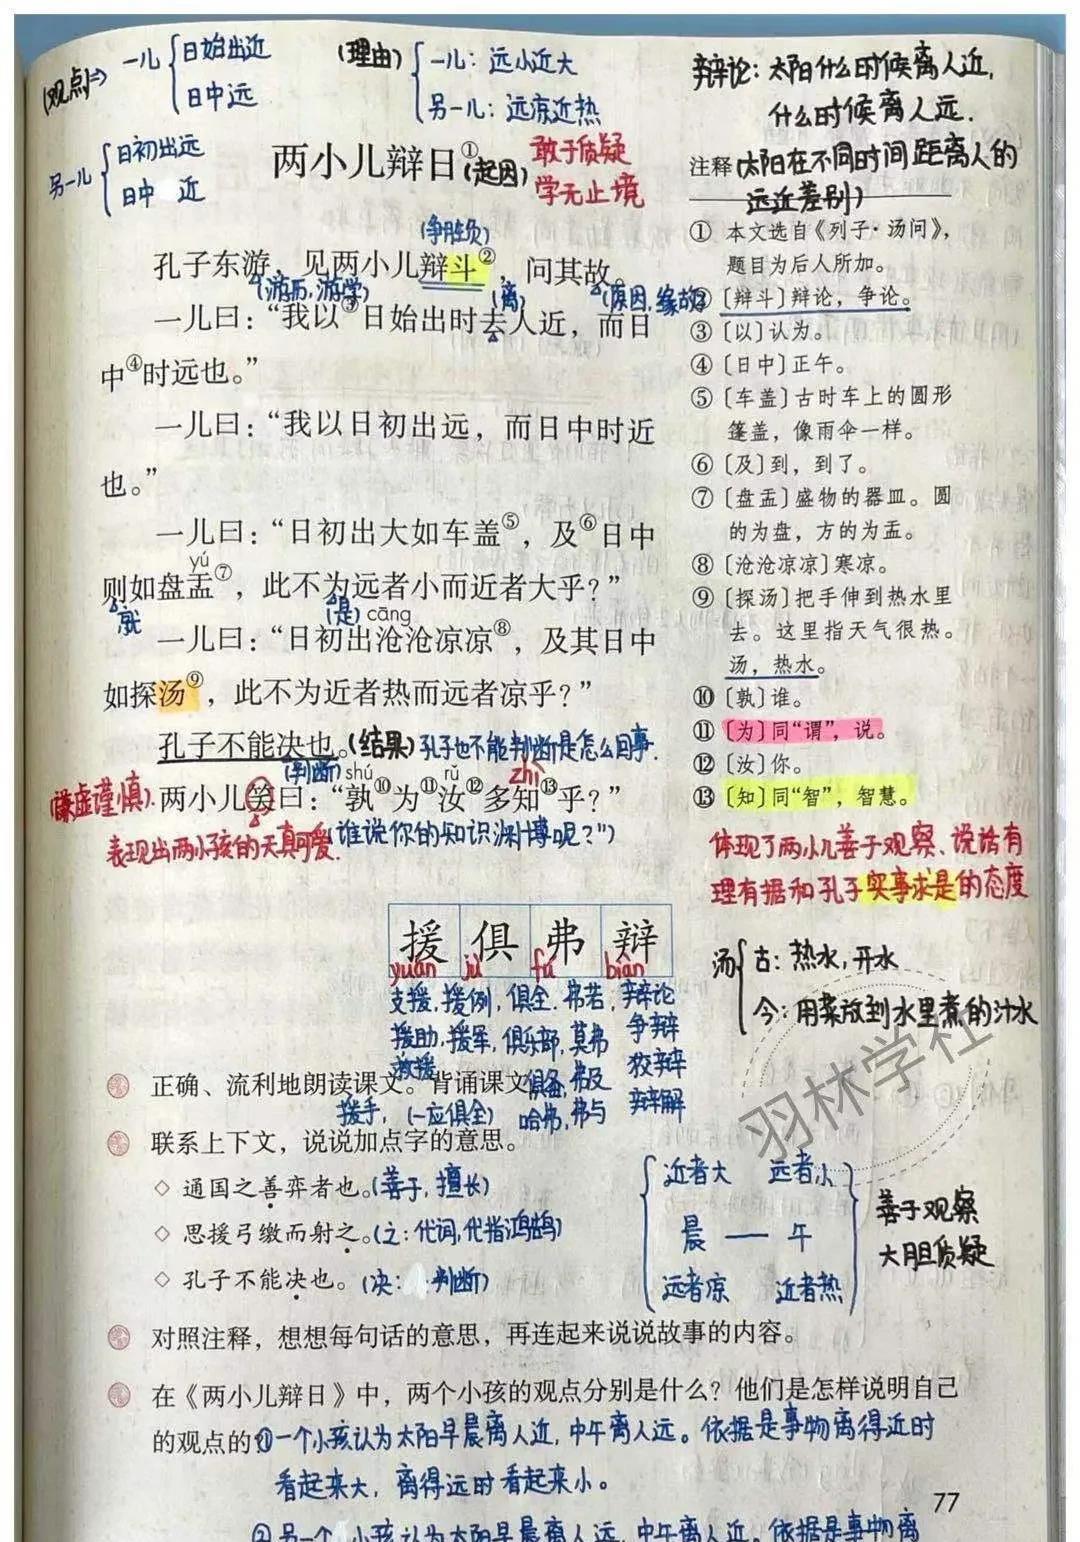 (观点)⇒ 一儿 日始出近
日中远
(理由) 一儿：远小近大
另一儿：远凉近热
另一儿 日初出远
日中 近
辩论：太阳什么时候离人近，
什么时候离人远.
(太阳在不同时间距离人的
远近差别)
两小儿辩日① (起因)
敢于质疑
学无止境
(争胜负)
孔子东游，见两小儿辩斗②，问其故。
(游历，游学) (离) (原因，缘故)
一儿曰：“我以③日始出时去人近，而日
中④时远也。”
一儿曰：“我以日初出远，而日中时近
也。”
一儿曰：“日初出大如车盖⑤，及⑥日中
yú
则如盘盂⑦，此不为远者小而近者大乎？”
就 (是) cāng
一儿曰：“日初出沧沧凉凉⑧，及其日中
如探汤⑨，此不为近者热而远者凉乎？”
孔子不能决也。(结果) 孔子也不能判断是怎么回事.
(判断) shú rǔ zhì
(谦虚谨慎).
两小儿笑曰：“孰⑩为⑪汝⑫多知⑬乎？”
表现出两小孩的天真可爱. (谁说你的知识渊博呢？”)
注释
① 本文选自《列子·汤问》，
题目为后人所加。
② 〔辩斗〕辩论，争论。
③ 〔以〕认为。
④ 〔日中〕正午。
⑤ 〔车盖〕古时车上的圆形
篷盖，像雨伞一样。
⑥ 〔及〕到，到了。
⑦ 〔盘盂〕盛物的器皿。圆
的为盘，方的为盂。
⑧ 〔沧沧凉凉〕寒凉。
⑨ 〔探汤〕把手伸到热水里
去。这里指天气很热。
汤，热水。
⑩ 〔孰〕谁。
⑪ 〔为〕同“谓”，说。
⑫ 〔汝〕你。
⑬ 〔知〕同“智”，智慧。
体现了两小儿善于观察、说话有
理有据和孔子实事求是的态度
汤 古：热水，开水
今：用菜放到水里煮的汁水
援 俱 弗 辩
yuán jù fú biàn
支援，援例，俱全，弗若，辩论
援助，援军，俱乐部，莫弗 争辩
救援 俱备，弗及 狡辩
援手，(一应俱全) 哈弗，弗与 辩解
正确、流利地朗读课文。背诵课文。
联系上下文，说说加点字的意思。
◇ 通国之善弈者也。(善于，擅长)
◇ 思援弓缴而射之。(之：代词，代指鸿鹄)
◇ 孔子不能决也。(决： 判断)
近者大 远者小
晨 — 午
远者凉 近者热
善于观察
大胆质疑
对照注释，想想每句话的意思，再连起来说说故事的内容。
在《两小儿辩日》中，两个小孩的观点分别是什么？他们是怎样说明自己
的观点的？①一个小孩认为太阳早晨离人近，中午离人远。依据是事物离得近时
看起来大，离得远时看起来小。
②另一个小孩认为太阳早晨离人远，中午离人近。依据是事物离
77
羽林学社